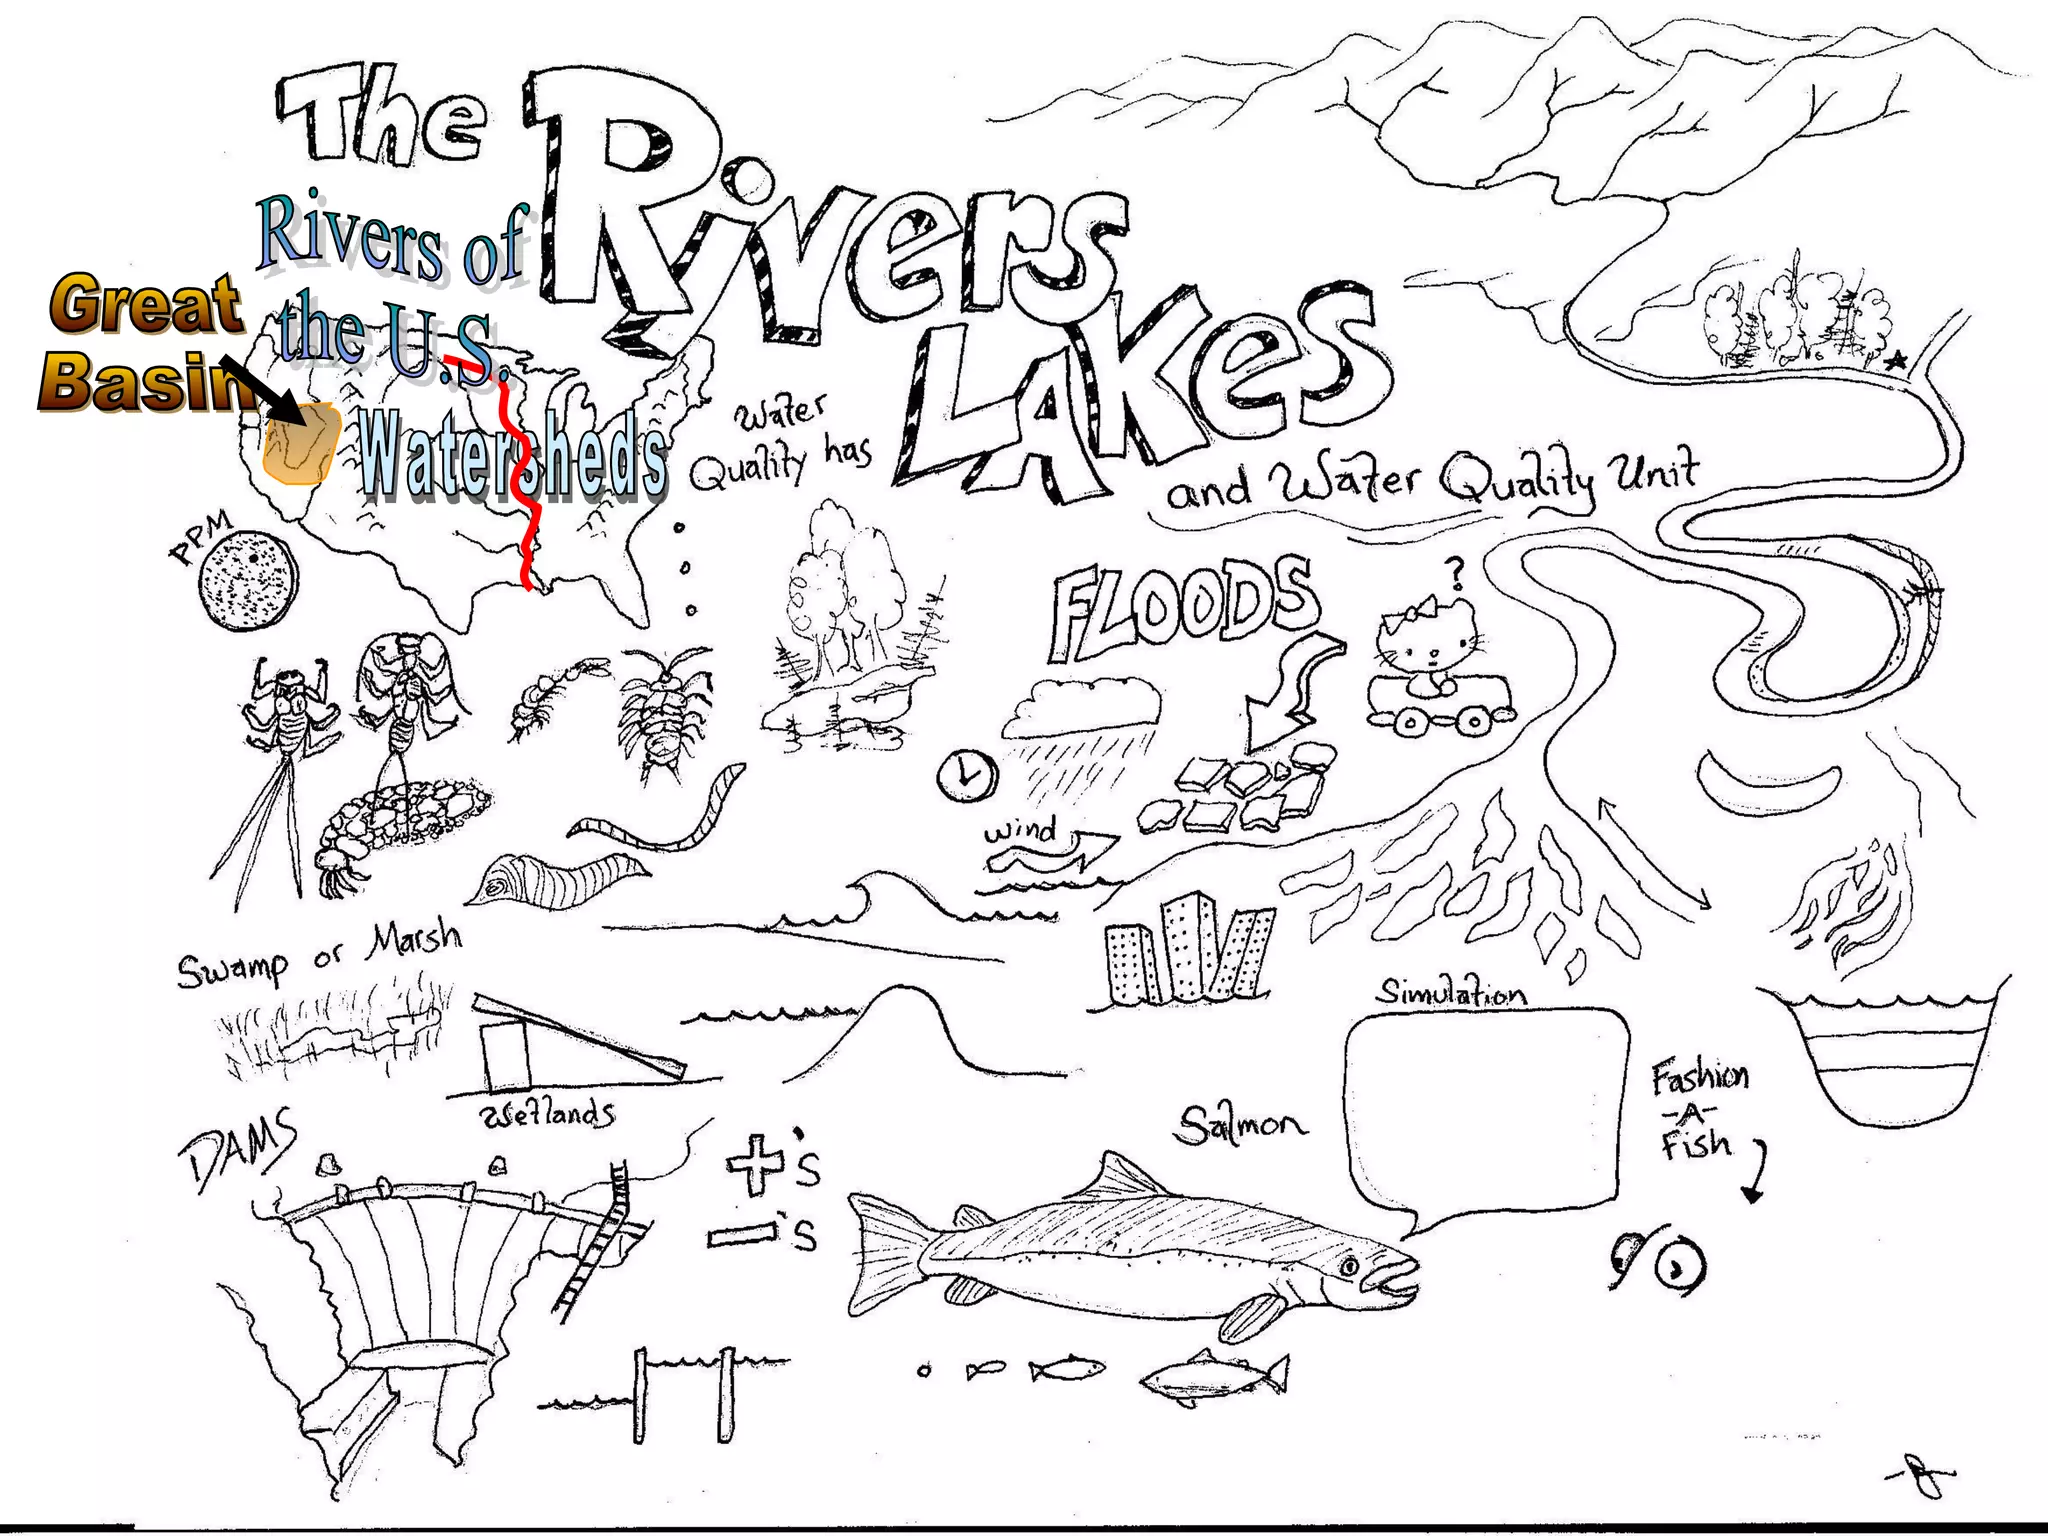 The Rivers
LAKes
and Water Quality Unit
Rivers of
the U.S.
Great
Basin
Watersheds
Water
Quality has
PPM
FLOODS
?
wind
Swamp or Marsh
Wetlands
Simulation
Fashion
-A-
Fish
Salmon
DAMS
+'s
-'s